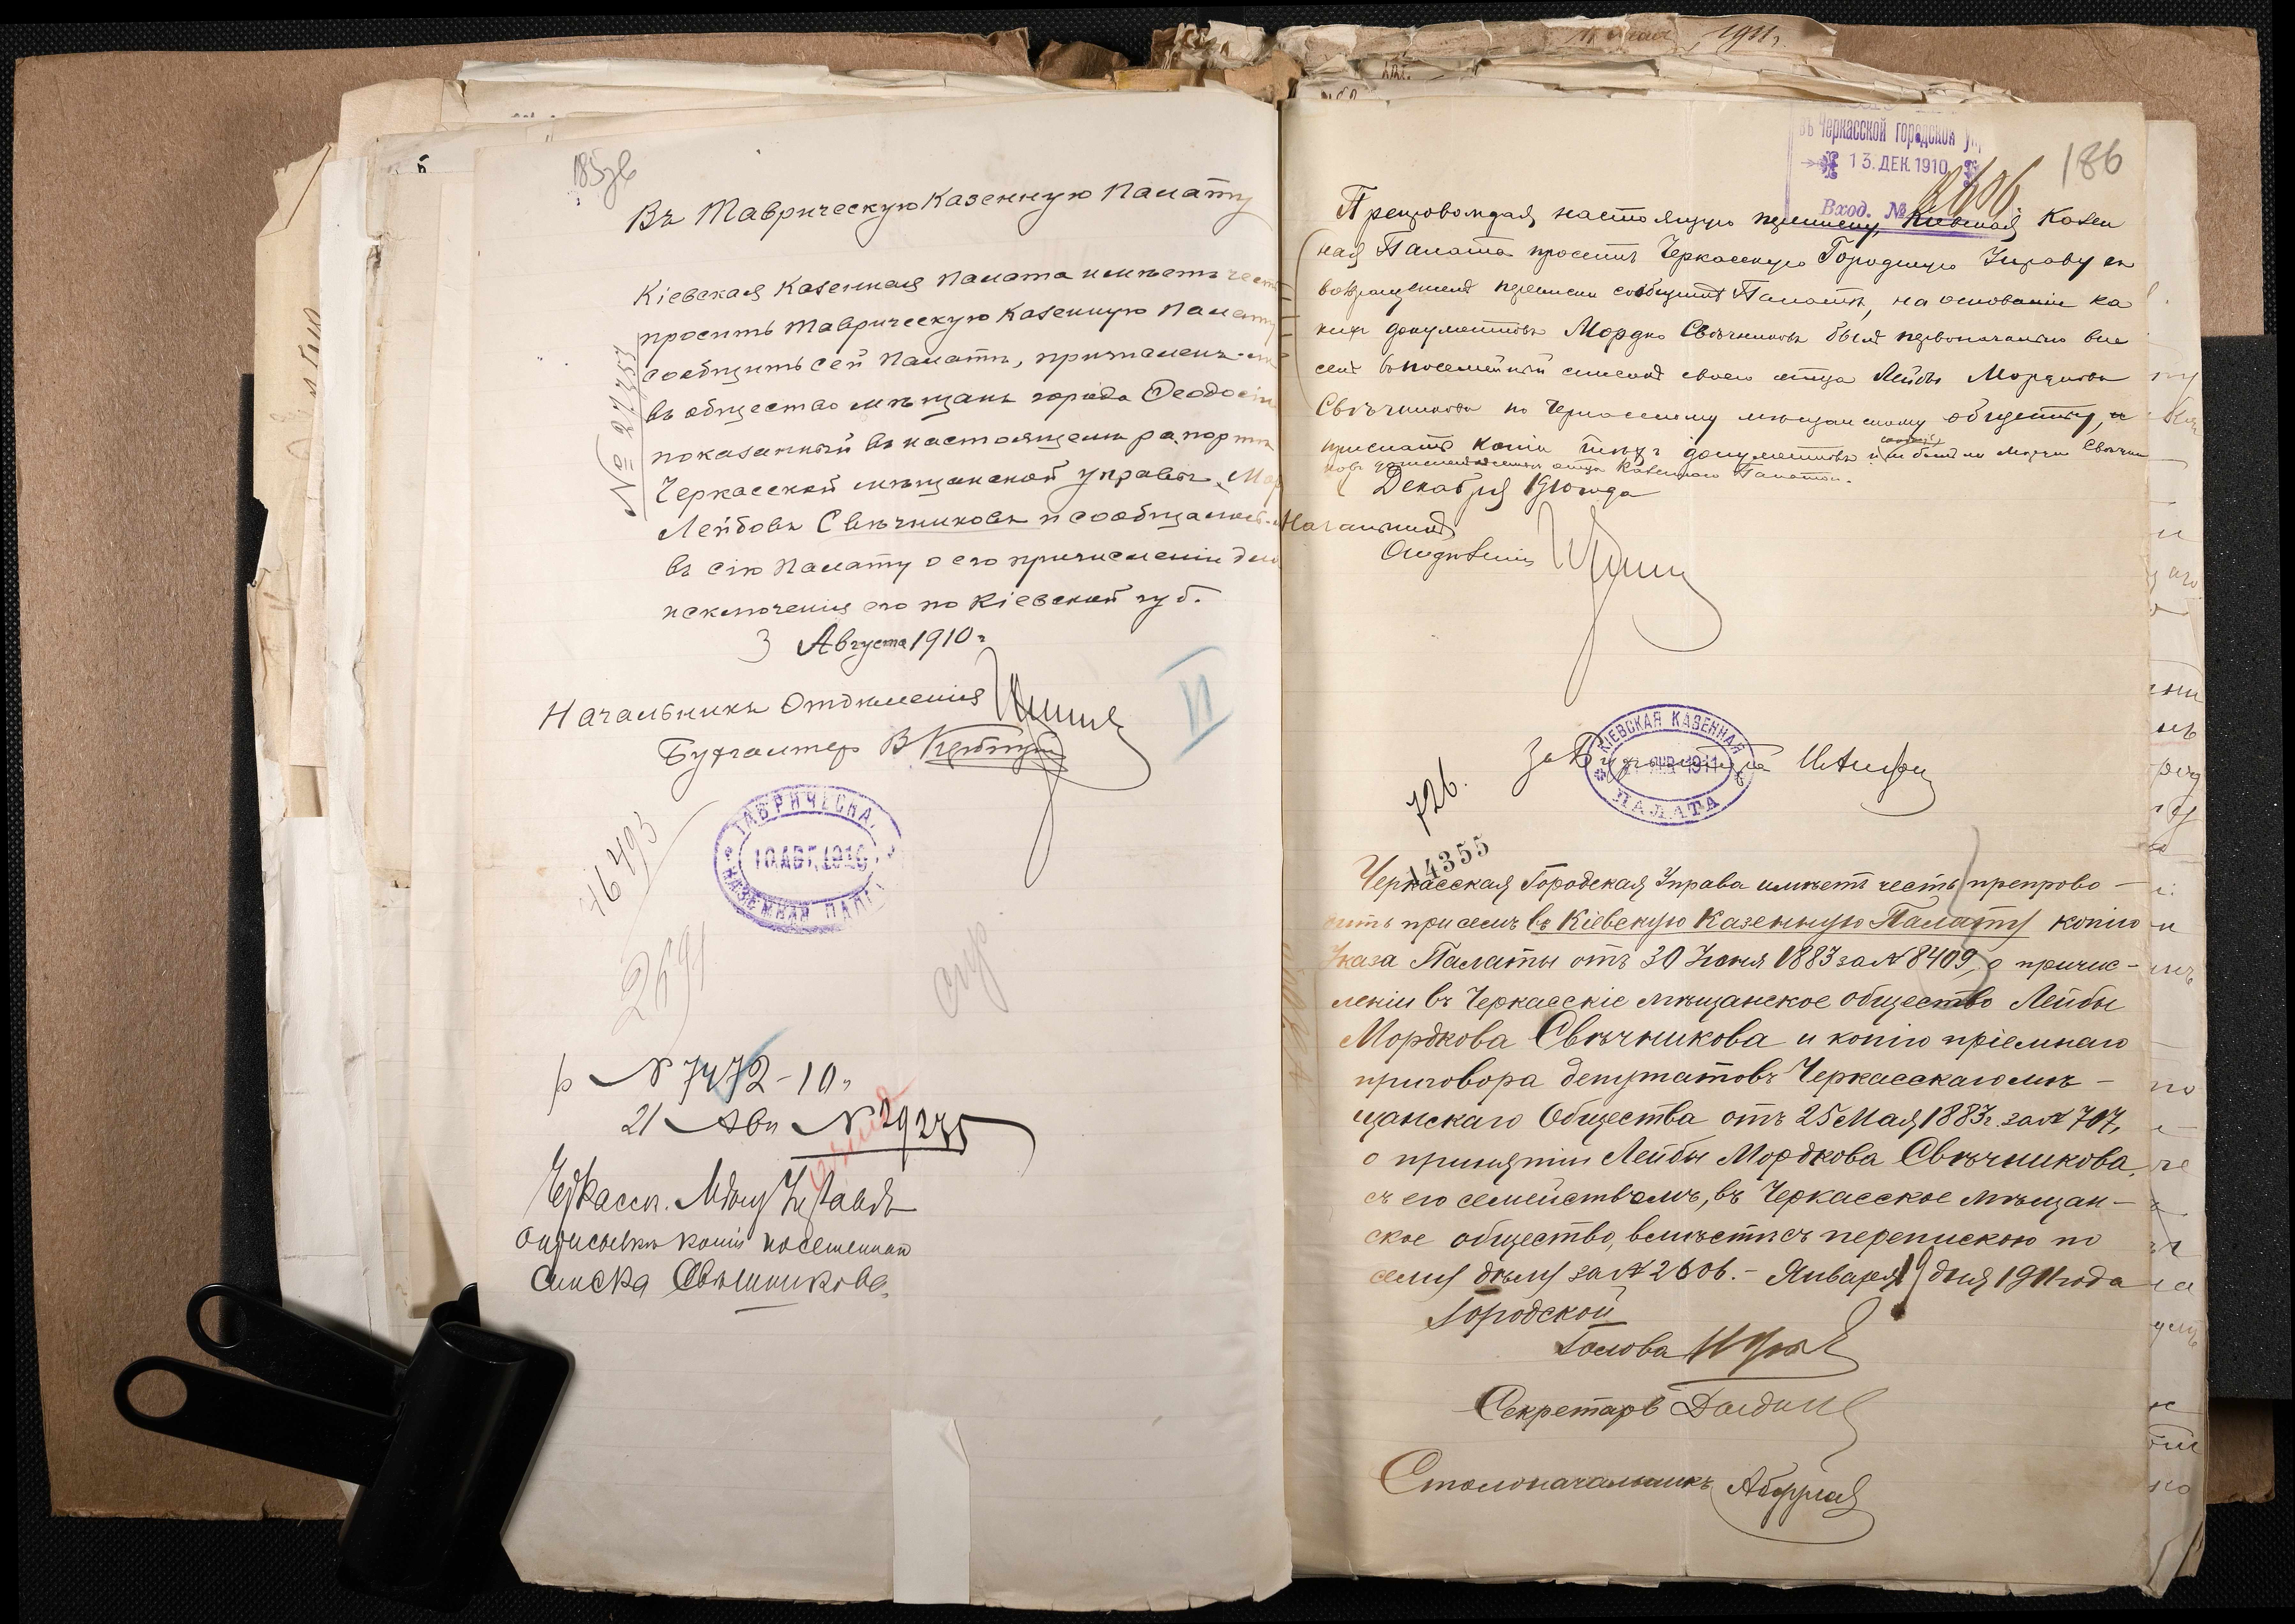 185 об
Въ Таврическую Казенную Палату
Кіевская Казенная Палата имѣетъ чест
просить Таврическую Казенную Палату
сообщить сей Палатѣ, причисленъ-ли
въ общество мѣщанъ города Ѳеодосіи
показанный въ настоящемъ рапортѣ
Черкасской мѣщанской управы, Мор
Лейбовъ Свѣчниковъ и сообщалось-ли
въ сію Палату о его причисленіи для
исключенія его по Кіевской губ.
3 Августа 1910 г
№ 27753
Начальникъ Отдѣленія
Бухгалтеръ В
ТАВРИЧЕСКА
10 АВГ. 1910
КАЗЕННАЯ ПАЛА
16493
2691
р № 7472-10 г
21 Авг № 29275
Черкасск. Мѣщ Управѣ
копіи посемейнаго
списка Свѣчникова
въ Черкасской городской уп
13. ДЕК. 1910
Вход. № 2606
186
Препровождая настоящую переписку, Кіевская Казен
ная Палата проситъ Черкасскую Городскую Управу съ
возвращеніемъ переписки сообщить Палатѣ, на основаніи ка
кихъ документовъ Мордко Свѣчниковъ былъ первоначально вне
сенъ въ посемейный списокъ своего отца Лейбы Мордкова
Свѣчникова по Черкасскому мѣщанскому обществу, и
прислать копіи тѣхъ документовъ
Декабря 1910 года
Начальникъ
Отдѣленія
За Бухгалтера
КІЕВСКАЯ КАЗЕННАЯ
ЯНВ 1911
ПАЛАТА
726.
14355
Черкасская Городская Управа имѣетъ честь препрово-
дить при семъ въ Кіевскую Казенную Палату копію
Указа Палаты отъ 30 Іюня 1883 за № 8409, о причис-
леніи въ Черкасскіе мѣщанское общество Лейбы
Мордкова Свѣчникова и копію пріемнаго
приговора депутатовъ Черкасскаго мѣ-
щанскаго Общества отъ 25 Мая 1883 г. за № 707,
о принятіи Лейбы Мордкова Свѣчникова,
съ его семействомъ, въ Черкасское мѣщан-
ское общество, вмѣстѣ съ перепискою по
сему дѣлу за № 2606. - Января 19 дня 1911 года
Городской
Голова
Секретарь
Столоначальникъ